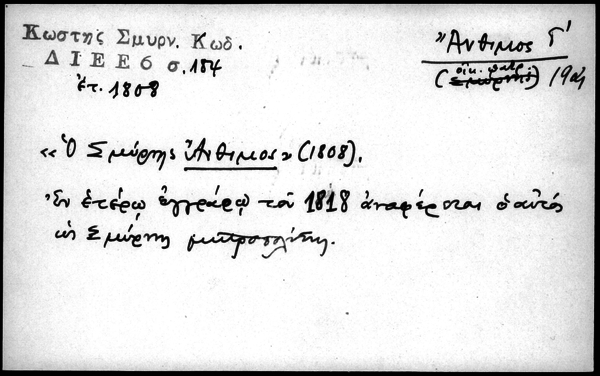 Κωστῆς Σμυρν. Κωδ.
ΔΙΕΕ6 σ.184
ἔτ. 1808
Ἄνθιμος Γ΄
(οἰκ. πατρ.) 19ος
«Ὁ Σμύρνης Ἄνθιμος» (1808).
Ἐν ἑτέρῳ ἐγγράφῳ τοῦ 1818 ἀναφέρεται ὁ αὐτός
ὡς Σμύρνης μητροπολίτης.